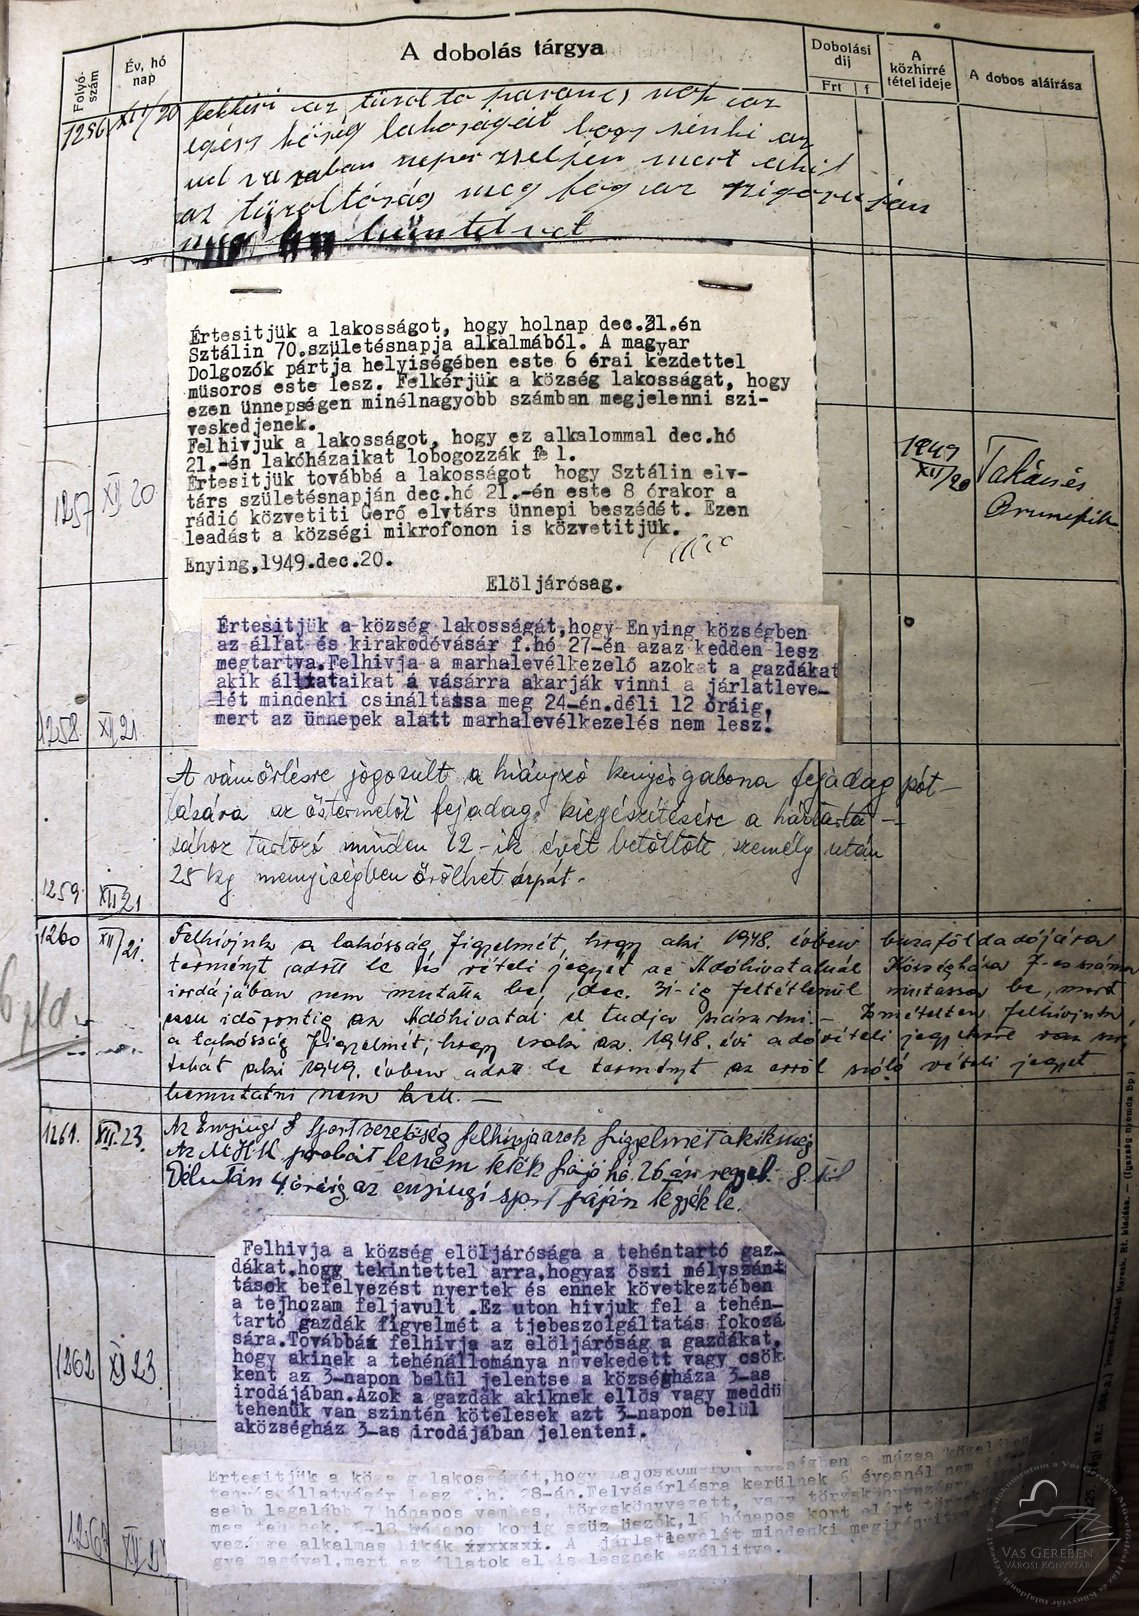 Folyó-
szám
Év, hó
nap
A dobolás tárgya
Dobolási
díj
Frt f
A
közhirré
tétel ideje
A dobos aláírása
1256 XII/20 felkéri az tüzoltó parancsnok az
egész község lakoságát hogy sénki az
ud varaban nepörzseljen mert akit
az tüzoltóság meg fog az szigoruján
meg büntetvet
Értesitjük a lakosságot, hogy holnap dec.21.én
Sztálin 70.születésnapja alkalmából. A magyar
Dolgozók pártja helyiségében este 6 érai kezdettel
müsoros este lesz. Felkérjük a község lakosságát, hogy
ezen ünnepségen minélnagyobb számban megjelenni szi-
veskedjenek.
Felhivjuk a lakosságot, hogy ez alkalommal dec.hó
21.-én lakóházaikat lobogozzák fe l.
Értesitjük továbbá a lakosságot hogy Sztálin elv-
társ születésnapján dec.hó 21.-én este 8 órakor a
rádió közvetiti Gerő elvtárs ünnepi beszédét. Ezen
leadást a községi mikrofonon is közvetitjük.
Enying,1949.dec.20.
Elöljáróság.
1257 XII 20
1949
XII/20
Takács
Értesitjük a község lakosságát,hogy Enying községben
az állat és kirakodóvásár f.hó 27-én azaz kedden lesz
megtartva.Felhivja a marhalevélkezelő azokat a gazdákat
akik állataikat á vásárra akarják vinni a járlatleve-
lét mindenki csináltassa meg 24-én.déli 12 óráig,
mert az ünnepek alatt marhalevélkezelés nem lesz!
1258 XII 21.
A vámőrlésre jogosult a hiányzó kenyérgabona fejadag pót-
lására az őstermelői fejadag kiegészitésére a háztartá-
sához tartozó minden 12-ik évét betöltött személy után
25 kg menyiségben őrölhet árpát.
1259. XII 21
1260 XII/21. Felhivjuk a lakósság figyelmét, hogy aki 1948. évben buzaföldadójára
terményt adott le és vételi jegyét az Adóhivatalnál Községháza 7-es számú
irodájában nem mutatta be, dec. 31-ig feltétlenül mutassa be, mert
ezen időpontig az Adóhivatal el tudja számolni. - Ismételten felhivjuk
a lakósság figyelmét, hogy csak az 1948. évi adóvételi jegyekről van szó,
tehát aki 1949. évben adott le terményt az erről szóló vételi jegyet
bemutatni nem kell. -
1261. XII. 23. Az Enyingi Sportvezetőség felhivja azok figyelmét akik még
Az MHK próbát lenem tették folyó hó 26 án reggel 8. tól
Délután 4 óráig az enyingi sport páján tegyék le.
Felhivja a község elöljárósága a tehéntartó gaz-
dákat,hogy tekintettel arra,hogyaz öszi mélyszánt
tások befelyezést nyertek és ennek következtében
a tejhozam feljavult .Ez uton hivjuk fel a tehén-
tartó gazdák figyelmét a tjebeszolgáltatás fokozá
sára.Továbbáx felhivja az elöljáróság a gazdákat,
hogy akinek a tehénállománya növekedett vagy csök
kent az 3-napon belül jelentse a községháza 3-as
irodájában.Azok a gazdák akiknek ellős vagy meddü
tehenük van szintén kötelesek azt 3-napon belül
aközségház 3-as irodájában jelenteni.
1262 XII 23.
Értesitjük a község lakosságát,hogy községben a mázsa közelében
tenyészállatvásár lesz f.h. 28-án.Felvásárlásra kerülnek 6 évesnél nem
sebb legalább 7 hónapos vemhes, törzskönyvezett, vagy törzskönyvezésre
mas tehenek. 6-18 hónapos korig szüz üszők,16 hónapos kort elért
alkalmas bikák xxxxxxx. A járlatlevelét mindenki
magával,mert az állatok el is lesznek szállitva.
1263 XII
VAS GEREBEN
VÁROSI KÖNYVTÁR